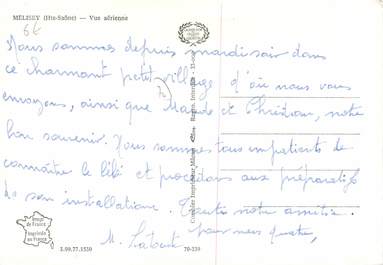 MÉLISEY (Hte-Saône) — Vue aérienne
66
Nous sommes depuis mardi soir dans
ce charmant petit village d'où nous vous
envoyons, ainsi que Maude et Christian, notre
bon souvenir. Nous sommes tous impatients de
connaître le bébé et procédons aux préparatifs
de son installation. Toute notre amitié.
pour nous quatre,
M.
Image
de France
Imprimée
en France
3.99.77.1539
70-339
Combier Imprimeur Mâcon